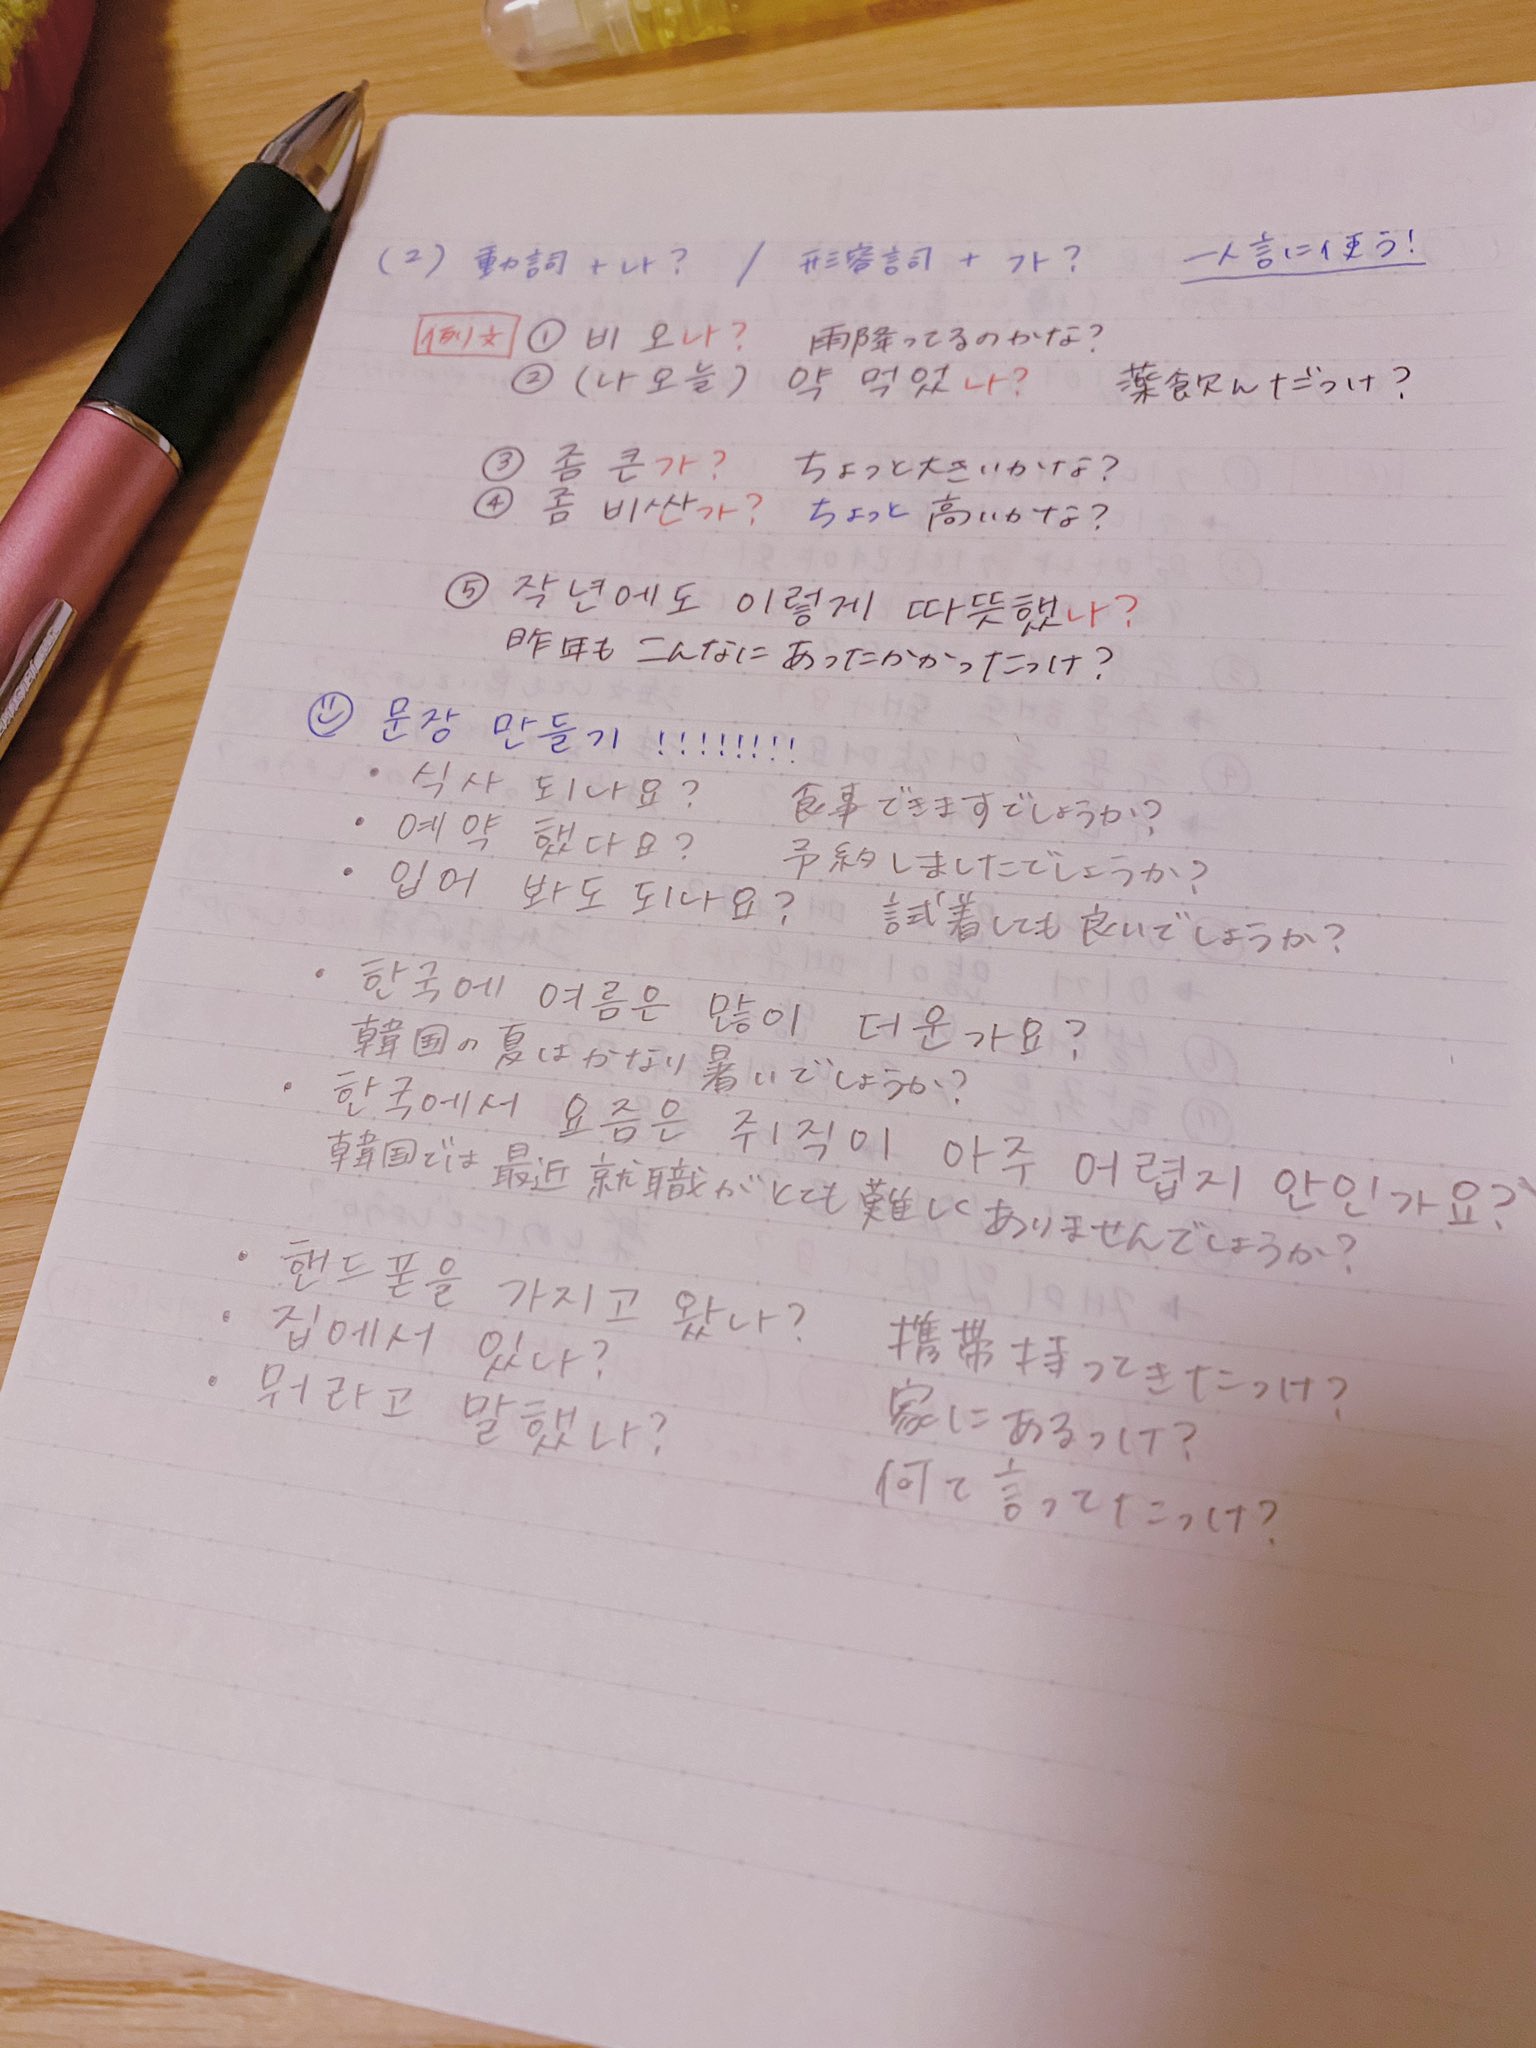 (2) 動詞 + 나? / 形容詞 + 가? 一人言に使う!
例文 ① 비 오나? 雨降ってるのかな?
② (나 오늘) 약 먹었나? 薬飲んだっけ?
③ 좀 큰가? ちょっと大きいかな?
④ 좀 비싼가? ちょっと高いかな?
⑤ 작년에도 이렇게 따뜻했나?
昨年も こんなに あったかかったっけ?
문장 만들기 !!!!!!!!
• 식사 되나요? 食事できますでしょうか?
• 예약 했다요? 予約しましたでしょうか?
• 입어 봐도 되나요? 試着しても良いでしょうか?
• 한국에 여름은 많이 더운가요?
韓国の夏はかなり暑いでしょうか?
• 한국에서 요즘은 취직이 아주 어렵지 안인가요?
韓国では最近就職がとても難しくありませんでしょうか?
• 핸드폰을 가지고 왔나? 携帯持ってきたっけ?
• 집에서 있나? 家にあるっけ?
• 뭐라고 말했나? 何て言ってたっけ?